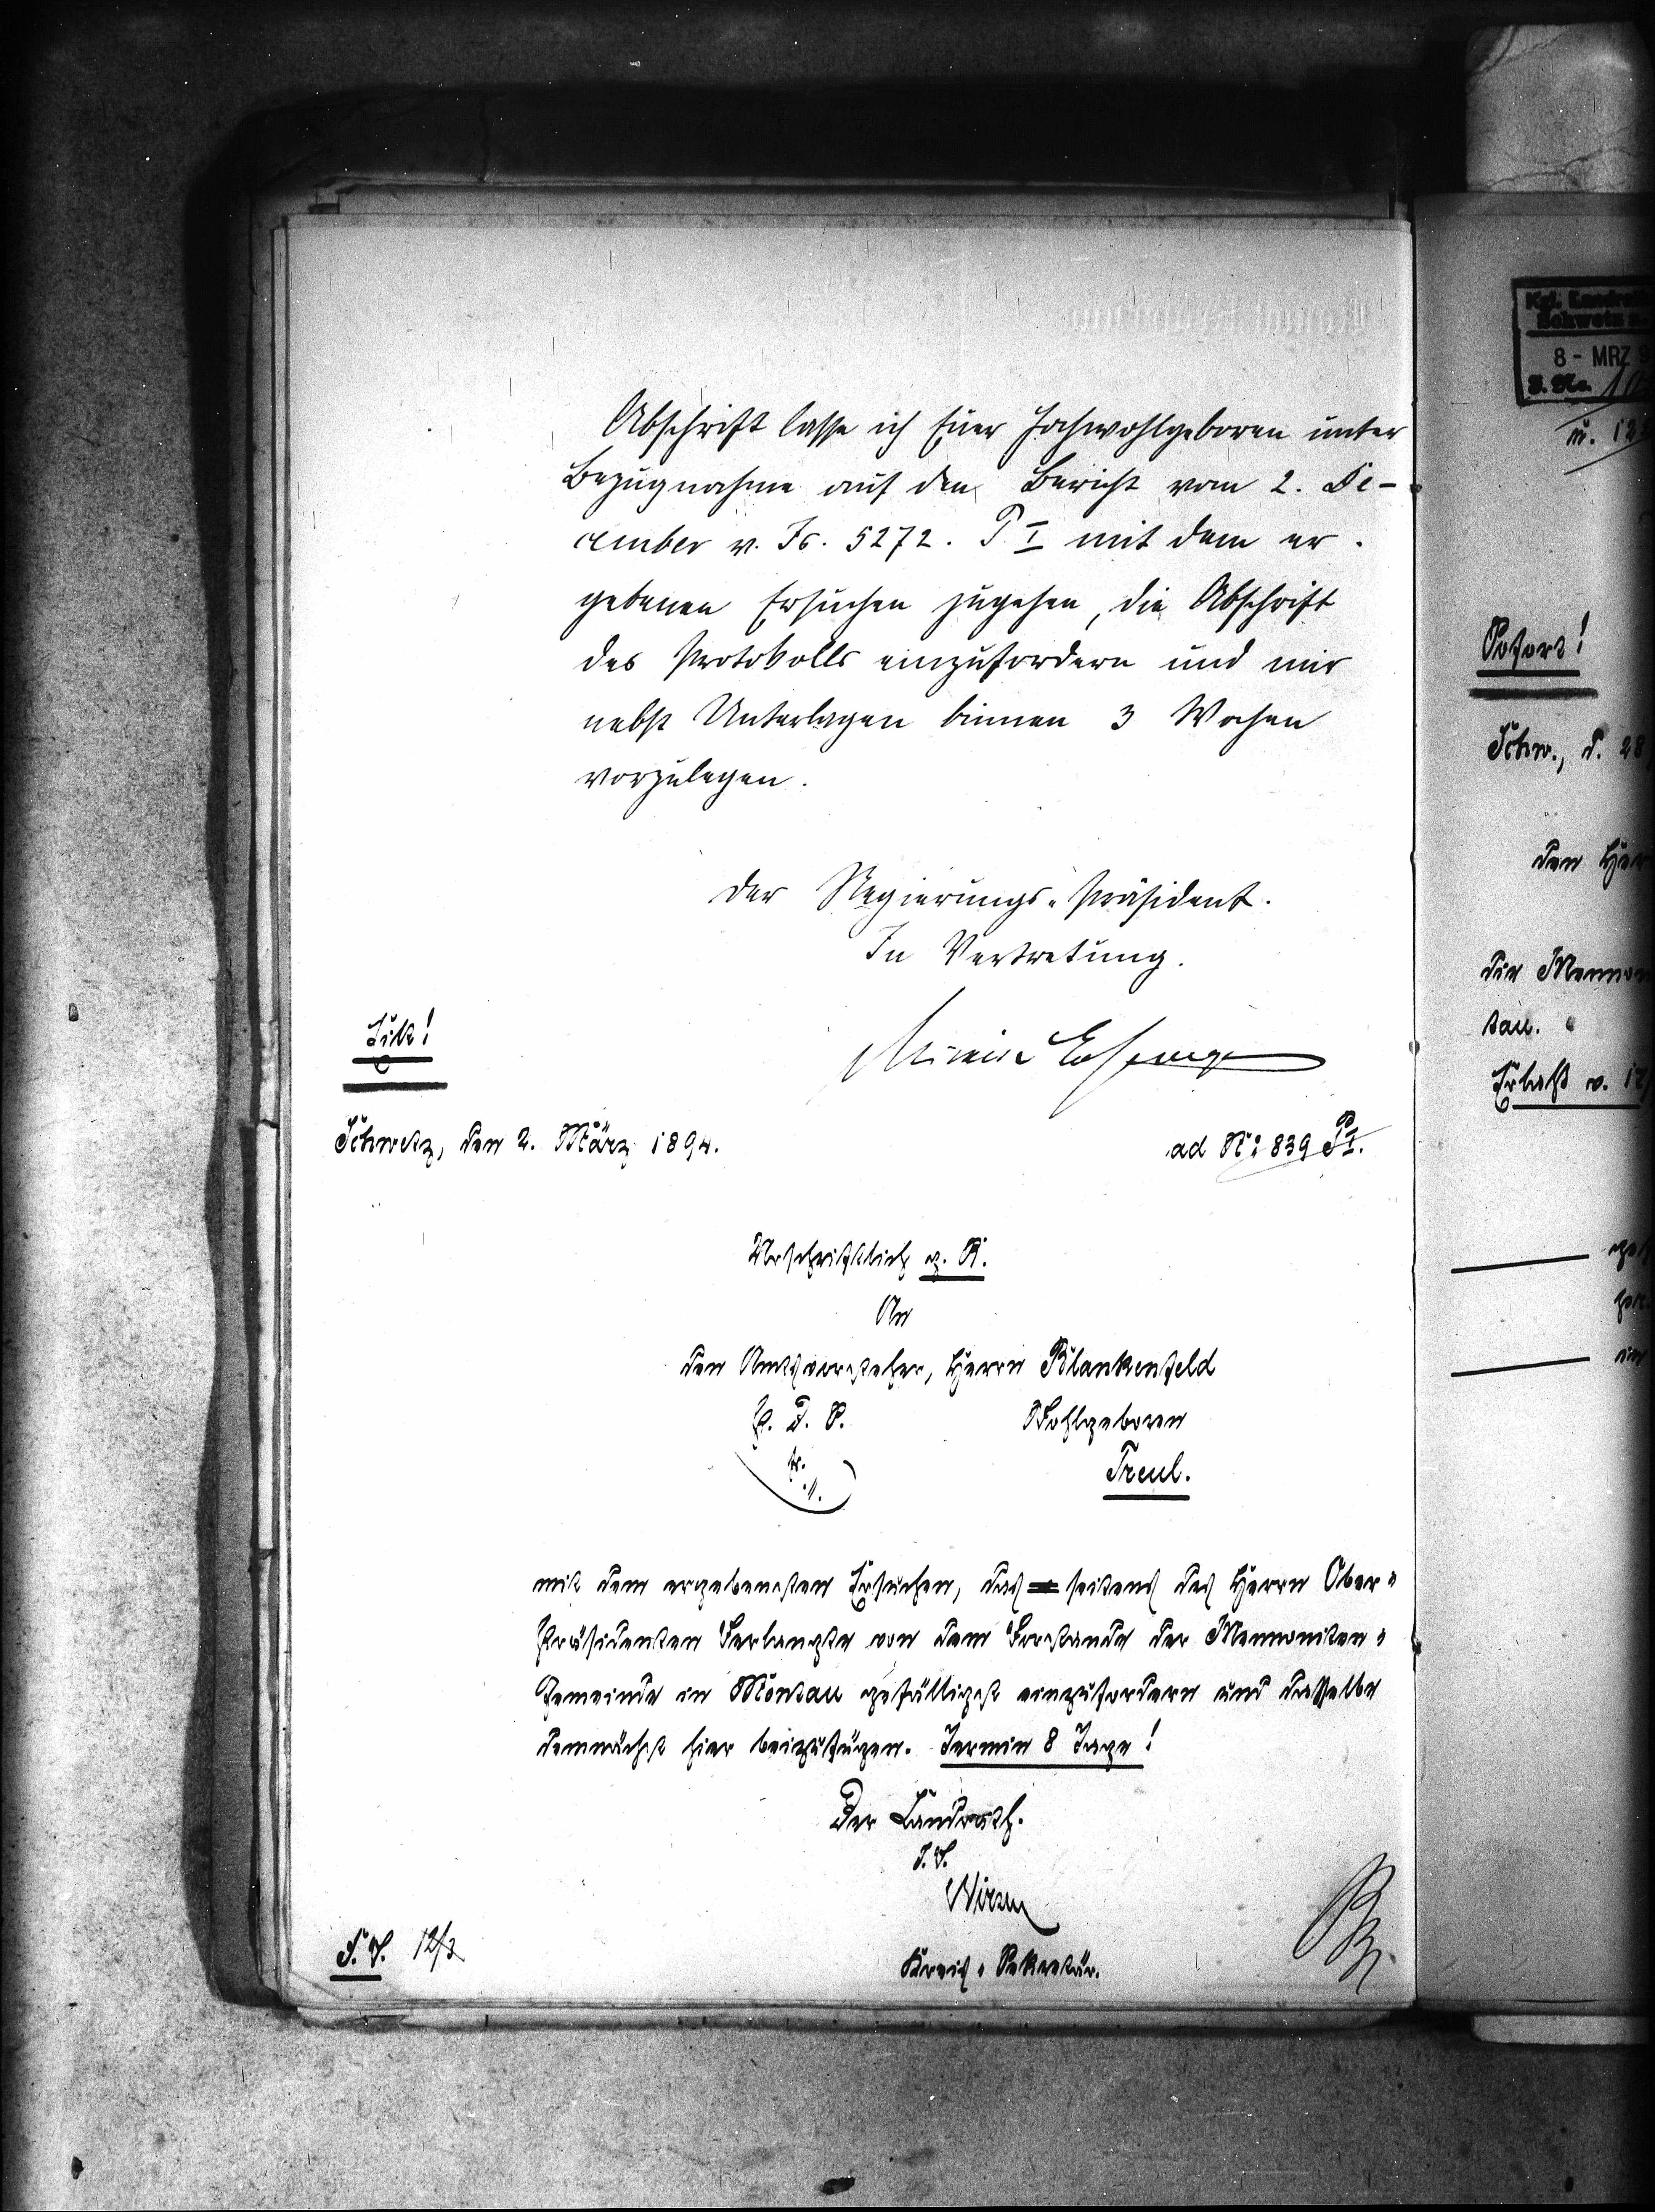 Abschrift lasse ich Euer Hochwohlgeboren unter
Bezugnahme auf den Bericht vom 2. De-
cember v. Js. 5272. P. I mit dem er-
gebenen Ersuchen zugehen, die Abschrift
des Protokolls einzufordern und mir
nebst Unterlagen binnen 3 Wochen
vorzulegen.
Der Regierungs-Präsident.
In Vertretung.
Eilt!
Schwetz, den 2. März 1894.
ad No 839 P I.
Urschriftlich g. R.
An
den Amtsvorsteher, Herrn Blankenfeld
Wohlgeboren
Treul.
mit dem ergebensten Ersuchen, das seitens des Herrn Ober-
Präsidenten Verlangte von dem Vorstande der Mennoniten-
Gemeinde in Montau gefälligst einzufordern und dasselbe
demnächst hier beizufügen. Termin 8 Tage!
Der Landrath.
I. V.
Kreis-Sekretär.
12/3
8 - MRZ 9
Sofort!
Schw., d. 28
den Herr
die Mennon
tau.
Erlaß v. 17/